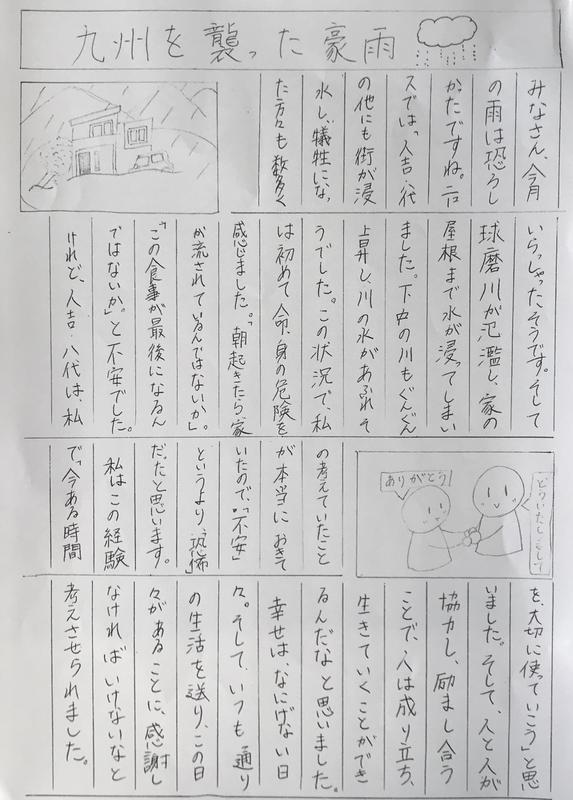 九州を襲った豪雨
みなさん、今月
の雨は恐ろし
かったですね。ニュー
スでは、人吉・八代
の他にも街が浸
水し、犠牲になっ
た方々も数多く
いらっしゃったそうです。そして
球磨川が氾濫し、家の
屋根まで水が浸ってしまい
ました。下中の川もぐんぐん
上昇し、川の水があふれそ
うでした。この状況で、私
は初めて命、身の危険を
感じました。「朝起きたら家
が流されているんではないか。」
「この食事が最後になるん
ではないか。」と不安でした。
けれど、人吉・八代は、私
の考えていたこと
が本当におきて
いたので、"不安"
というより、"恐怖"
だったと思います。
私はこの経験
で「今ある時間
を、大切に使っていこう」と思
いました。そして、人と人が
協力し、励まし合う
ことで、人は成り立ち、
生きていくことができ
るんだなと思いました。
幸せは、なにげない日
々。そして、いつも通り
の生活を送り、この日
々があることに、感謝し
なければいけないなと
考えさせられました。
ありがとう
どういたしまして